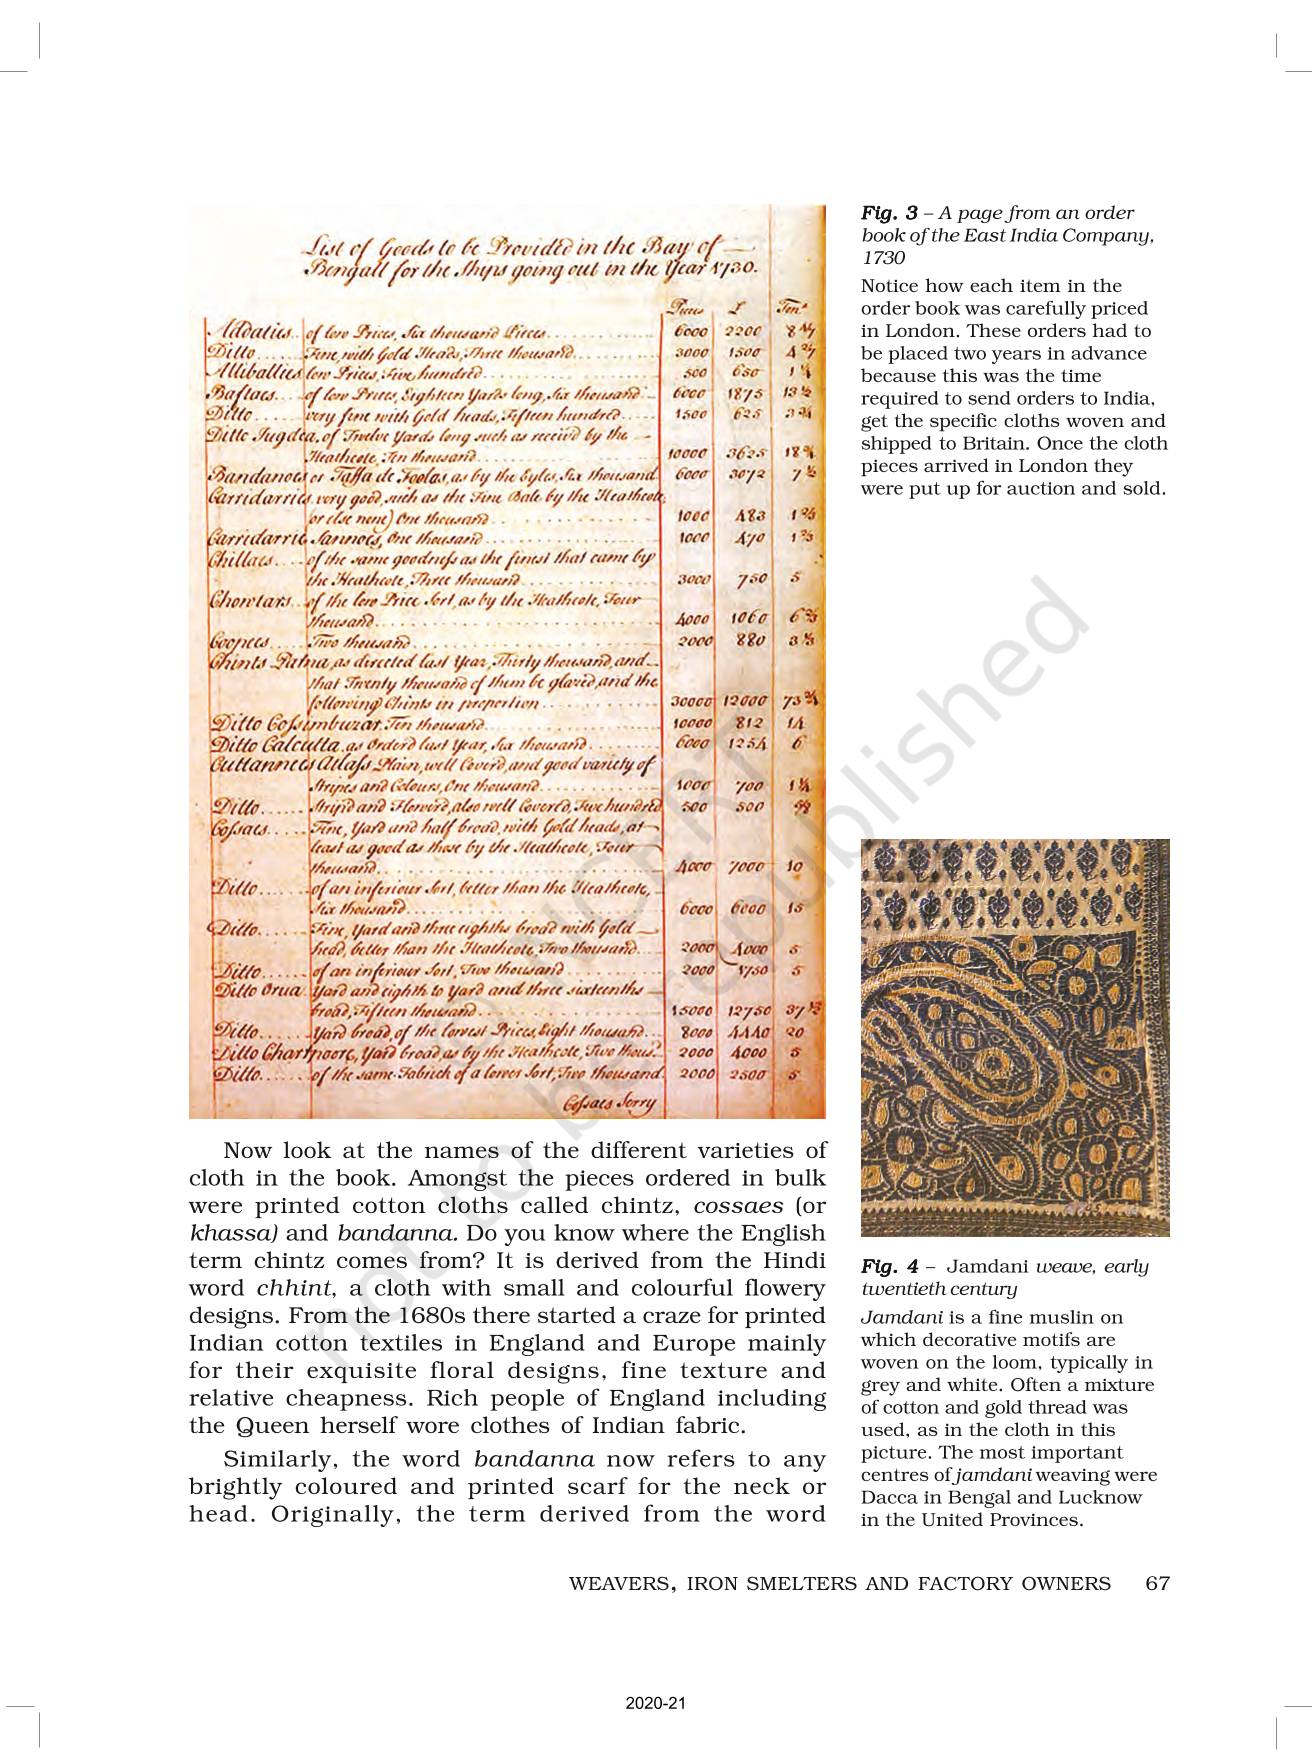 List of Goods to be Provided in the Bay of
Bengall for the Ships going out in the Year 1730.
Pieces £ Tons
Addaties.. of low Prices, Six thousand Pieces 6000 2200
Ditto Fine, with Gold Heads, Three thousand 3000 1500
Alliballies low Prices, Five hundred 500 650
Baftaes of low Prices, Eighteen Yards long, Six thousand 6000 1875 13 ½
Ditto very fine with Gold heads, Fifteen hundred 1500 625
Ditto Jugdea, of Twelve Yards long such as receiv'd by the
Heathcote, Ten thousand 10000 3625
Bandanoes or Taffa de Foolas, as by the Eyles, Six thousand 6000 3072 7 ½
Carridarries very good, such as the Fine Bale by the Heathcote,
(or else none) One thousand 1000 483
Carridarrie Sannoes, One thousand 1000 470
Chillaes of the same goodness as the finest that came by
the Heathcote, Three thousand 3000 750 5
Chowtars of the low Price Sort, as by the Heathcote, Four
thousand 4000 1060
Coopees Two thousand 2000 880
Chints Patna, as directed last Year, Thirty thousand, and
that Twenty thousand of them be glazed, and the
following Chints in proportion 30000 12000
Ditto Cossumbuzar, Ten thousand 10000 812 14
Ditto Calcutta, as Orderd last Year, Six thousand 6000 1254 6
Cuttannees Atlass Plain, well Cover'd, and good variety of
Stripes and Colours, One thousand 1000 700
Ditto Strip'd and Flower'd, also well Covered, Five hundred 500 500
Cossaes Fine, Yard and half broad, with Gold heads, at
least as good as those by the Heathcote, Four
thousand 4000 7000 10
Ditto of an inferiour Sort, better than the Heathcote,
Six thousand 6000 6000 15
Ditto Fine, Yard and three eighths broad with Gold
head, better than the Heathcote, Two thousand 2000 4000 5
Ditto of an inferiour Sort, Two thousand 2000 1750 5
Ditto Orua Yard and eighth to Yard and three sixteenths
broad, Fifteen thousand 15000 12750 37 ½
Ditto Yard broad, of the lowest Prices, Eight thousand 8000 4440 20
Ditto Chartpoore, Yard broad, as by the Heathcote, Two thous.d 2000 4000 5
Ditto of the same Fabrick of a lower Sort, Two thousand 2000 2500 5
Cossaes Jorry
Fig. 3 – A page from an order
book of the East India Company,
1730
Notice how each item in the
order book was carefully priced
in London. These orders had to
be placed two years in advance
because this was the time
required to send orders to India,
get the specific cloths woven and
shipped to Britain. Once the cloth
pieces arrived in London they
were put up for auction and sold.
Now look at the names of the different varieties of
cloth in the book. Amongst the pieces ordered in bulk
were printed cotton cloths called chintz, cossaes (or
khassa) and bandanna. Do you know where the English
term chintz comes from? It is derived from the Hindi
word chhint, a cloth with small and colourful flowery
designs. From the 1680s there started a craze for printed
Indian cotton textiles in England and Europe mainly
for their exquisite floral designs, fine texture and
relative cheapness. Rich people of England including
the Queen herself wore clothes of Indian fabric.
Similarly, the word bandanna now refers to any
brightly coloured and printed scarf for the neck or
head. Originally, the term derived from the word
Fig. 4 – Jamdani weave, early
twentieth century
Jamdani is a fine muslin on
which decorative motifs are
woven on the loom, typically in
grey and white. Often a mixture
of cotton and gold thread was
used, as in the cloth in this
picture. The most important
centres of jamdani weaving were
Dacca in Bengal and Lucknow
in the United Provinces.
WEAVERS, IRON SMELTERS AND FACTORY OWNERS 67
2020-21
© NCERT
not to be republished